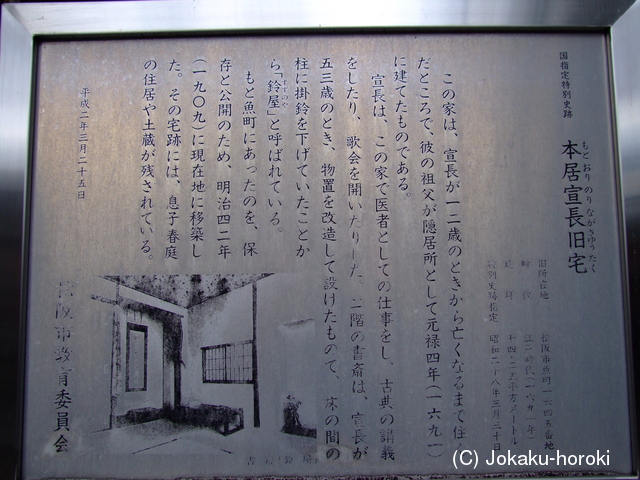 国指定特別史跡
本居宣長旧宅
もとおりのりながきゅうたく
旧所在地 松阪市魚町一六四五番地
時代 江戸時代(一六九一年)
特別史跡指定 昭和二十八年三月二十日
この家は、宣長が一二歳のときから亡くなるまで住ん
だところで、彼の祖父が隠居所として元禄四年(一六九一)
に建てたものである。
宣長は、この家で医者としての仕事をし、古典の講義
をしたり、歌会を開いたりした。二階の書斎は、宣長が
五三歳のとき、物置を改造して設けたもので、床の間の
柱に掛鈴を下げていたことか
ら「鈴屋」と呼ばれている。
すずのや
もと魚町にあったのを、保
存と公開のため、明治四二年
(一九〇九)に現在地に移築し
た。その宅跡には、息子春庭
の住居や土蔵が残されている。
平成二年三月二十五日
松阪市教育委員会
(C) Jokaku-horoki